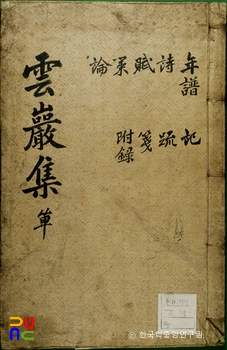 年譜 記
詩 疏
賦 箋
策 附錄
論
雲巖集 單
© 한국학중앙연구원